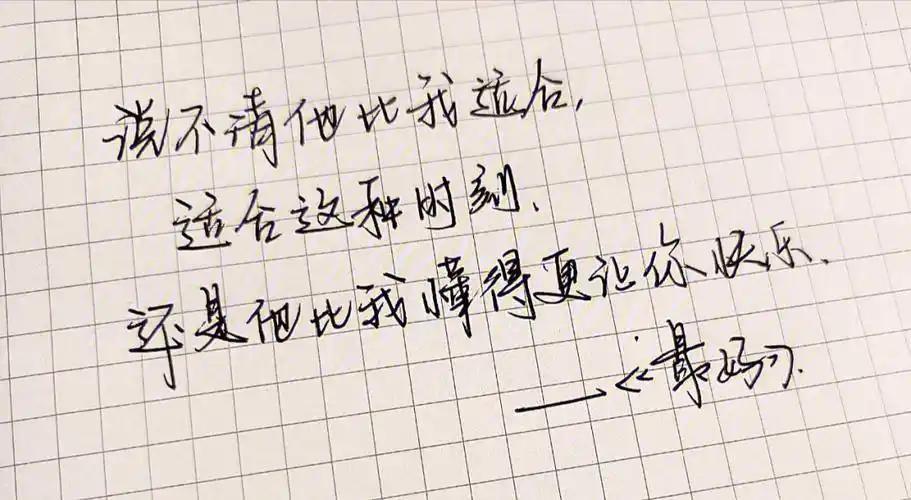 说不清他比我适合,
适合这种时刻.
还是他比我懂得更让你快乐.
——《最好》.